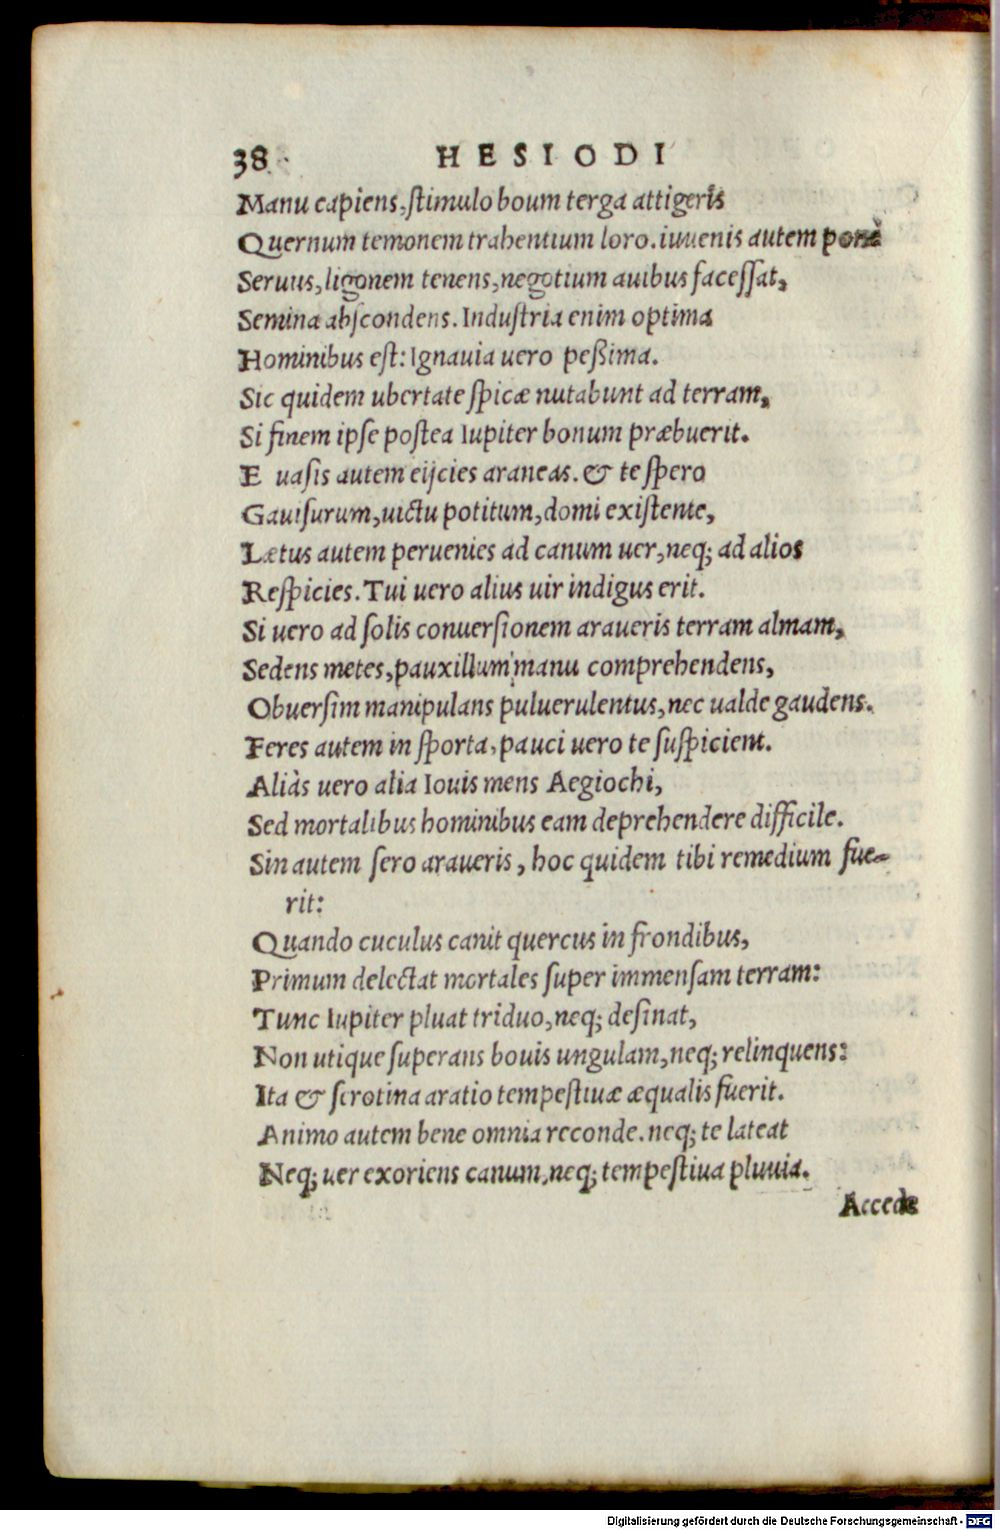 38 HESIODI
Manu capiens, stimulo boum terga attigeris
Quernum temonem trahentium loro. iuuenis autem ponè
Seruus, ligonem tenens, negotium auibus facessat,
Semina abscondens. Industria enim optima
Hominibus est: Ignauia uero peßima.
Sic quidem ubertate spicæ nutabunt ad terram,
Si finem ipse postea Iupiter bonum præbuerit.
E uasis autem eijcies araneas. & te spero
Gauisurum, uictu potitum, domi existente,
Lætus autem peruenies ad canum uer, neq; ad alios
Respicies. Tui uero alius uir indigus erit.
Si uero ad solis conuersionem araueris terram almam,
Sedens metes, pauxillum manu comprehendens,
Obuersim manipulans puluerulentus, nec ualde gaudens.
Feres autem in sporta, pauci uero te suspicient.
Aliàs uero alia Iouis mens Aegiochi,
Sed mortalibus hominibus eam deprehendere difficile.
Sin autem sero araueris, hoc quidem tibi remedium fue-
rit:
Quando cuculus canit quercus in frondibus,
Primum delectat mortales super immensam terram:
Tunc Iupiter pluat triduo, neq; desinat,
Non utique superans bouis ungulam, neq; relinquens:
Ita & serotina aratio tempestiuæ æqualis fuerit.
Animo autem bene omnia reconde. neq; te lateat
Neq; uer exoriens canum, neq; tempestiua pluuia.
Accede
Digitalisierung gefördert durch die Deutsche Forschungsgemeinschaft - DFG